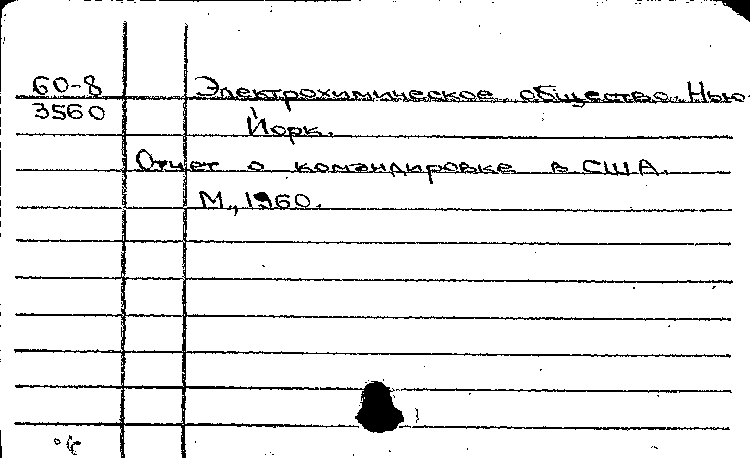 60-8 Электрохимическое общество. Нью-
3560 Йорк.
Отчет о командировке в США.
М., 1960.